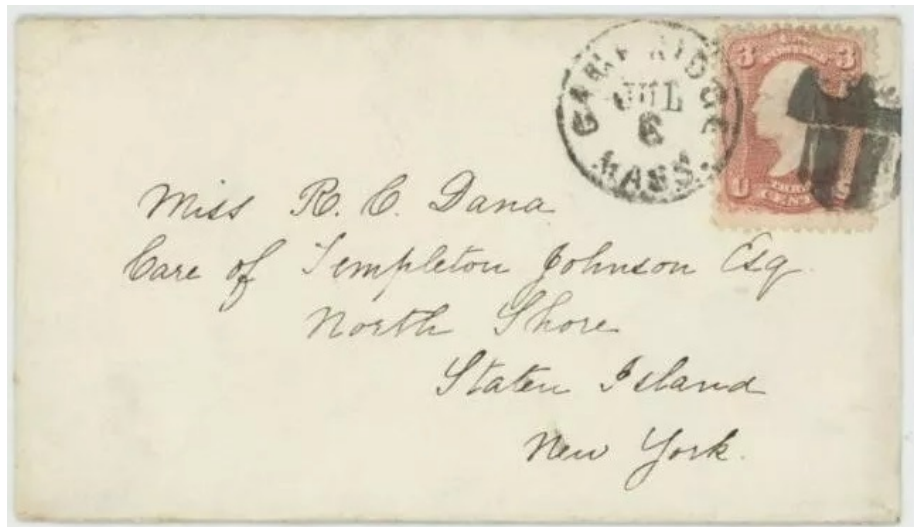 CAMBRIDGE
JUL
6
MASS.
3 3
U
CENTS
Miss R. C. Dana
Care of Templeton Johnson Esq.
North Shore
Staten Island
New York.